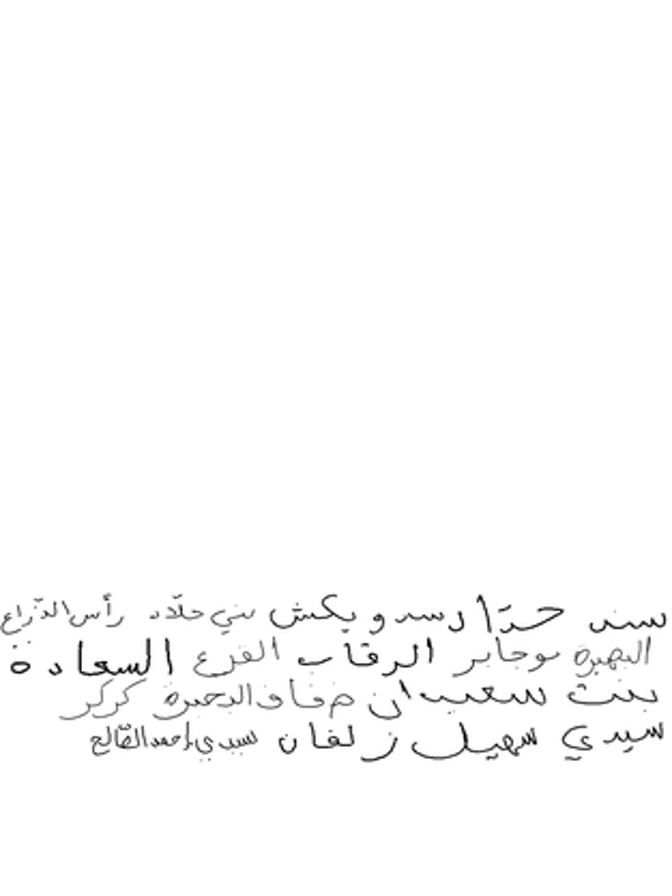 سند حدّادسد ويكش بني جلّاد رأس الذّراع
البهيرة بوجابر الرقاب الفرع السعادة
بنت سعيدان ضفاف البحيرة كركر
سيدي سهيل زلفان سيدي أحمد الصّالح